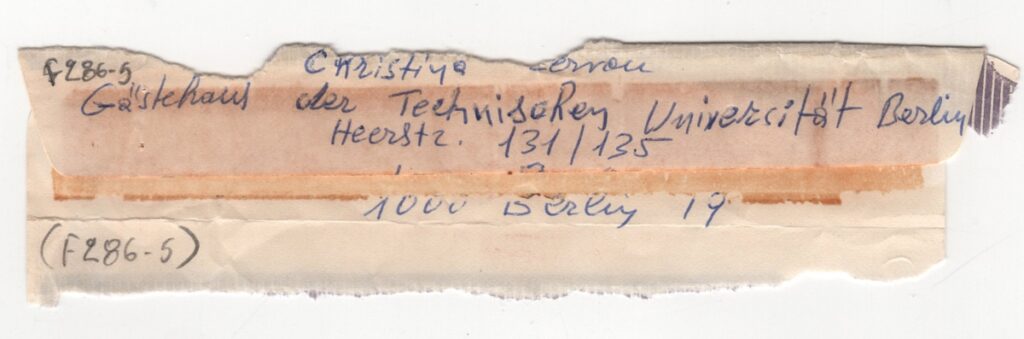 F286-5
Christina
Gästehaus der Technischen Universität Berlin
Heerstr. 131/135
1000 Berlin 19
(F286-5)